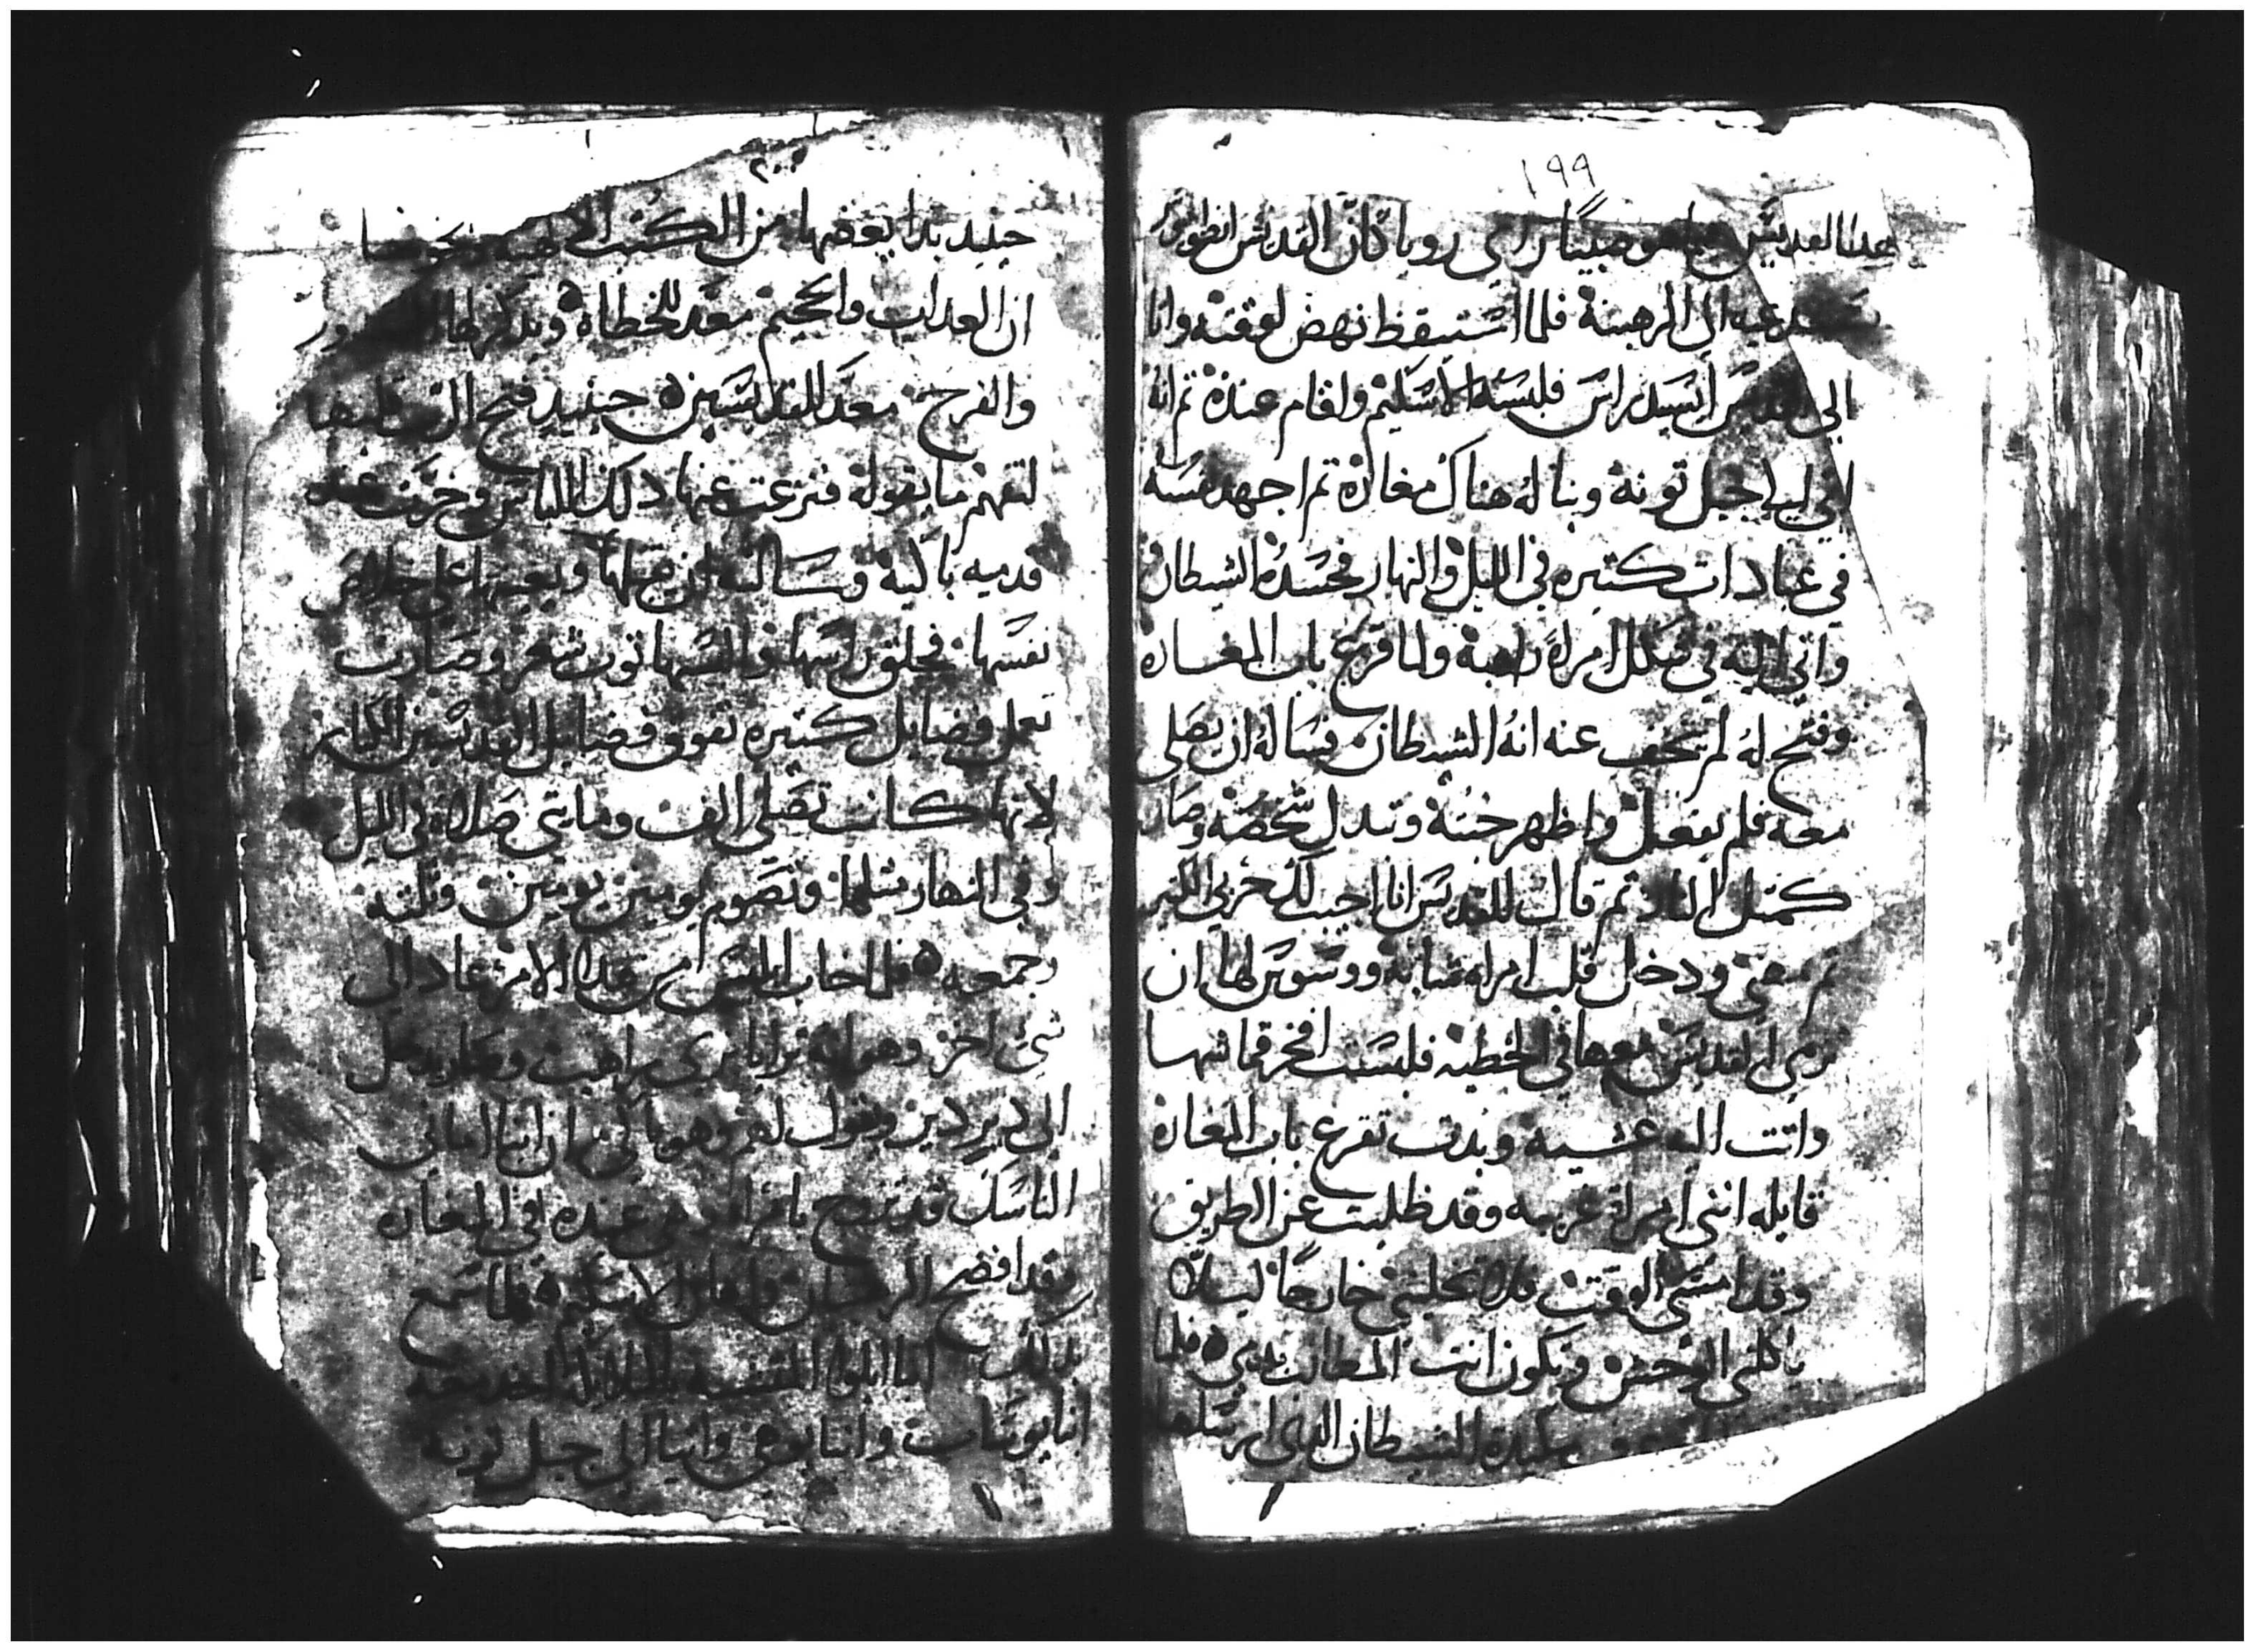 ١٩٩
هدا القديس هو صبيًا راي رويا كان القديس انطونيوس
يستدعيه الى الرهبنة فلما استيقظ نهض لوقته واتا
الي القديس ايسيدراس فلبسه الاسكيم واقام عنده تم انه
اتي الي جبل تونة وبنا له هناك مغارة تم اجهد نفسه
في عبادات كتيره في الليل والنهار فحسده الشيطان
واتي اليه في شكل امراة راهبة ولما قرع باب المغاره
وفتح له لم يخف عنه انه الشيطان فساله ان يصلي
معه فلم يفعل واظهر خبته وتبدل شخصه وصار
كمتل النار تم قال للقديس انا اجيب لك حربي الكتير
تم مضي ودخل قلب امراه شابة ووسوس لها ان
ترمي القديس معها في الخطيه فلبست افخر قماشها
واتت اليه عشيه وبدت تقرع باب المغارة
قايله انني امراة غريبه وقد ظليت عن الطريق
وقد امسى الوقت فلا تخليني خارجًا ليلا
ياكلني الوحش وتكون انت المطالب بدمي فلما
مكيدة الشيطان الذي ارسلها
٢٠٠
حينيد بدا يعضها من الكتب الالهيه ويخوفها
ان العداب والجحيم معد للخطاة ويدكر لها السرور
والفرح معد للقديسين حينيد فتح الرب قلبها
لتفهم ما يقوله فنزعت عنها دلك اللباس وخرت عند
قدميه باكية وسالته ان يقبلها ويعينها علي خلاص
نفسها فحلق راسها والبسها توب شعر وصارت
تعمل فضايل كتيره تفوق فضايل القديسين الكبار
لانها كانت تصلي الف ومايتي صلاة في الليل
وفي النهار متلها وتصوم يومين يومين وتلته
وجمعه فلما خاب ابليس من هدا الامر عاد الى
شي اخر وهو انه تزايا بزي راهب وصار يدخل
الي دير دير ويقول لهم وهو باكي ان انبا
الناسك قد تزوج بامراه وهي عنده في المغاره
وقد افضح الرهبان واهان الاسكيم فلما سمع
بدلك انبا ابلوا المتشبه بالملايكه اخد معه
انبا يوساب وانبا بوهي واتيا الي جبل تونه